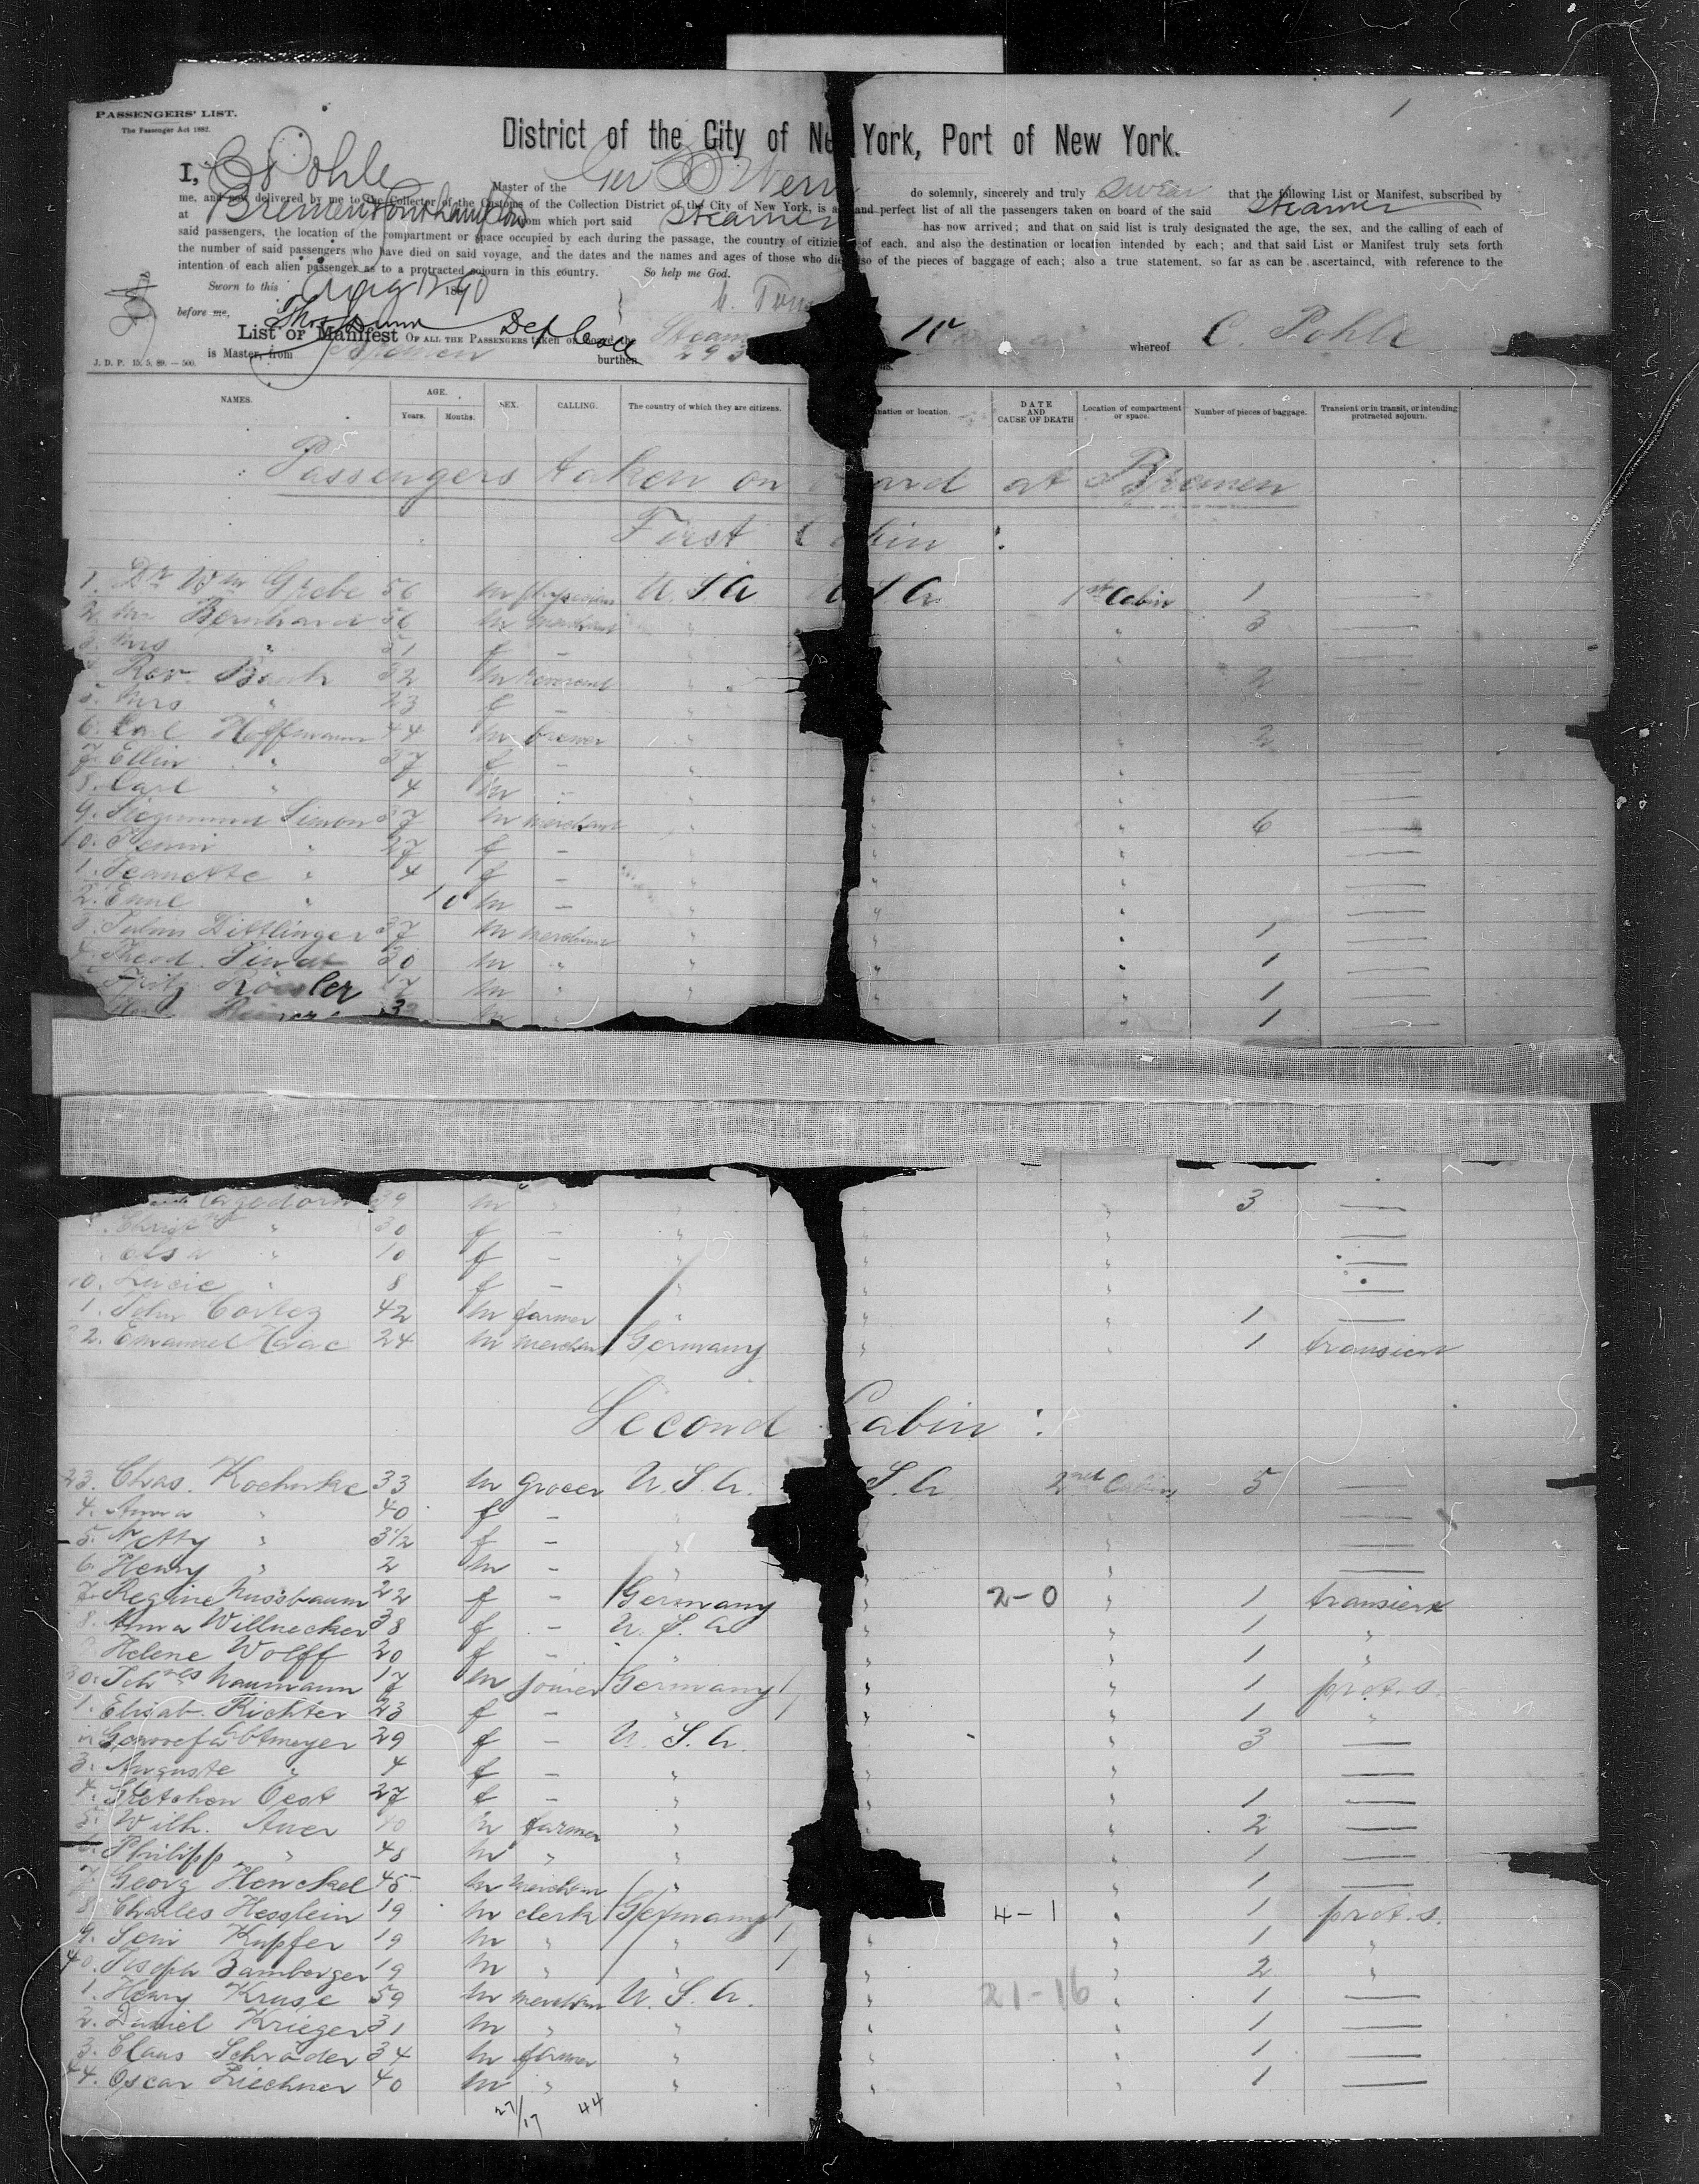 1
PASSENGERS' LIST.
The Passenger Act 1882.
District of the City of Ne York, Port of New York.
I, C Pohle Master of the Ger S S Werr do solemnly, sincerely and truly swear that the following List or Manifest, subscribed by
me, and now delivered by me to the Collector of the Customs of the Collection District of the City of New York, is a and perfect list of all the passengers taken on board of the said steamer
at Bremen Southampton from which port said Steamer has now arrived; and that on said list is truly designated the age, the sex, and the calling of each of
said passengers, the location of the compartment or space occupied by each during the passage, the country of citize of each, and also the destination or location intended by each; and that said List or Manifest truly sets forth
the number of said passengers who have died on said voyage, and the dates and the names and ages of those who die also of the pieces of baggage of each; also a true statement, so far as can be ascertained, with reference to the
intention of each alien passenger as to a protracted sojourn in this country. So help me God.
Sworn to this Aug 12 1890
before me, Thos Dunn Dep Coll
List or Manifest OF ALL THE PASSENGERS taken on board the Steam whereof C. Pohle
is Master, from Bremen burthen 293 ns.
J. D. P. 15. 5. 89. — 500.
NAMES. AGE. Years. Months. SEX. CALLING. The country of which they are citizens. nation or location. DATE AND CAUSE OF DEATH Location of compartment or space. Number of pieces of baggage. Transient or in transit, or intending protracted sojourn.
Passengers taken on ard at Bremen
First Cabin :
1. Dr Wm Grebe 56 m physician U. S. A U S A. 1st Cabin 1 —
2. Mr Bernhard 56 m merchant " " 3 —
3. Mrs " 51 f — " " —
4. Rev. Bank 32 m reverend " 2 —
5. Mrs " 23 f — " " —
6. Carl Hoffmann 44 m brewer " " 2 —
7. Ellin " 37 f — " " —
8. Carl " 4 m — " " —
9. Siegmund Simon 37 m merchant " " 6 —
10. " 27 f — " " —
1. Jeanette " 4 f — " " —
2. Emil " 10 m — " " —
3. Julius Dittlinger 37 m merchant " " 1 —
4. Theod. 30 m " " " 1 —
Fritz Rössler 17 m " " " 1 —
m " 1 —
agedorn 39 m " " " 3 —
" 30 f — " " —
Elsa " 10 f — " " —
10. Lucie " 8 f — " " —
1. John Cortez 42 m farmer " " 1 —
22. Emanuel Haac 24 m merchant Germany " " 1 transient
Second Cabin :
23. Chas. Koehnke 33 m grocer U. S. A. S. A 2nd Cabin 5 —
4. Anna " 40 f — " " —
5. Netty " 3 1/2 f — " " —
6. Henry " 2 m — " " —
7. Regine Nussbaum 22 f — Germany " 2-0 " 1 transient
8. Anna Willnecker 38 f — U. S. A " " 1 "
Helene Wolff 20 f — " " " 1 "
30. Johnes Naumann 17 m joiner Germany 1 " " 1 prot. s.
1. Elisab. Richter 23 f — " 1 " " 1 "
29 f — U. S. A. " 3 —
3. Auguste " 4 f — " " " —
4. Gretchen Oest 27 f — " " " 1 —
5. Wilh. Auer 40 m farmer " " " 2 —
6. Philipp " 48 m " " " 1 —
7. Georg Henckel 45 m merchant " " 1 —
8. Charles Hesslein 19 m clerk Germany 1 4-1 " 1 prot. s.
9. Semi Kupfer 19 m " " 1 " " 1 "
40. Joseph Bamberger 19 m " " 1 " " 2 "
1. Henry Kruse 59 m merchant U. S. A. " 21-16 " 1 —
2. Daniel Krieger 31 m " " " " 1 —
3. Claus Schröder 34 m farmer " " " 1 —
44. Oscar Liechner 40 m " " " " 1 —
27/17 44